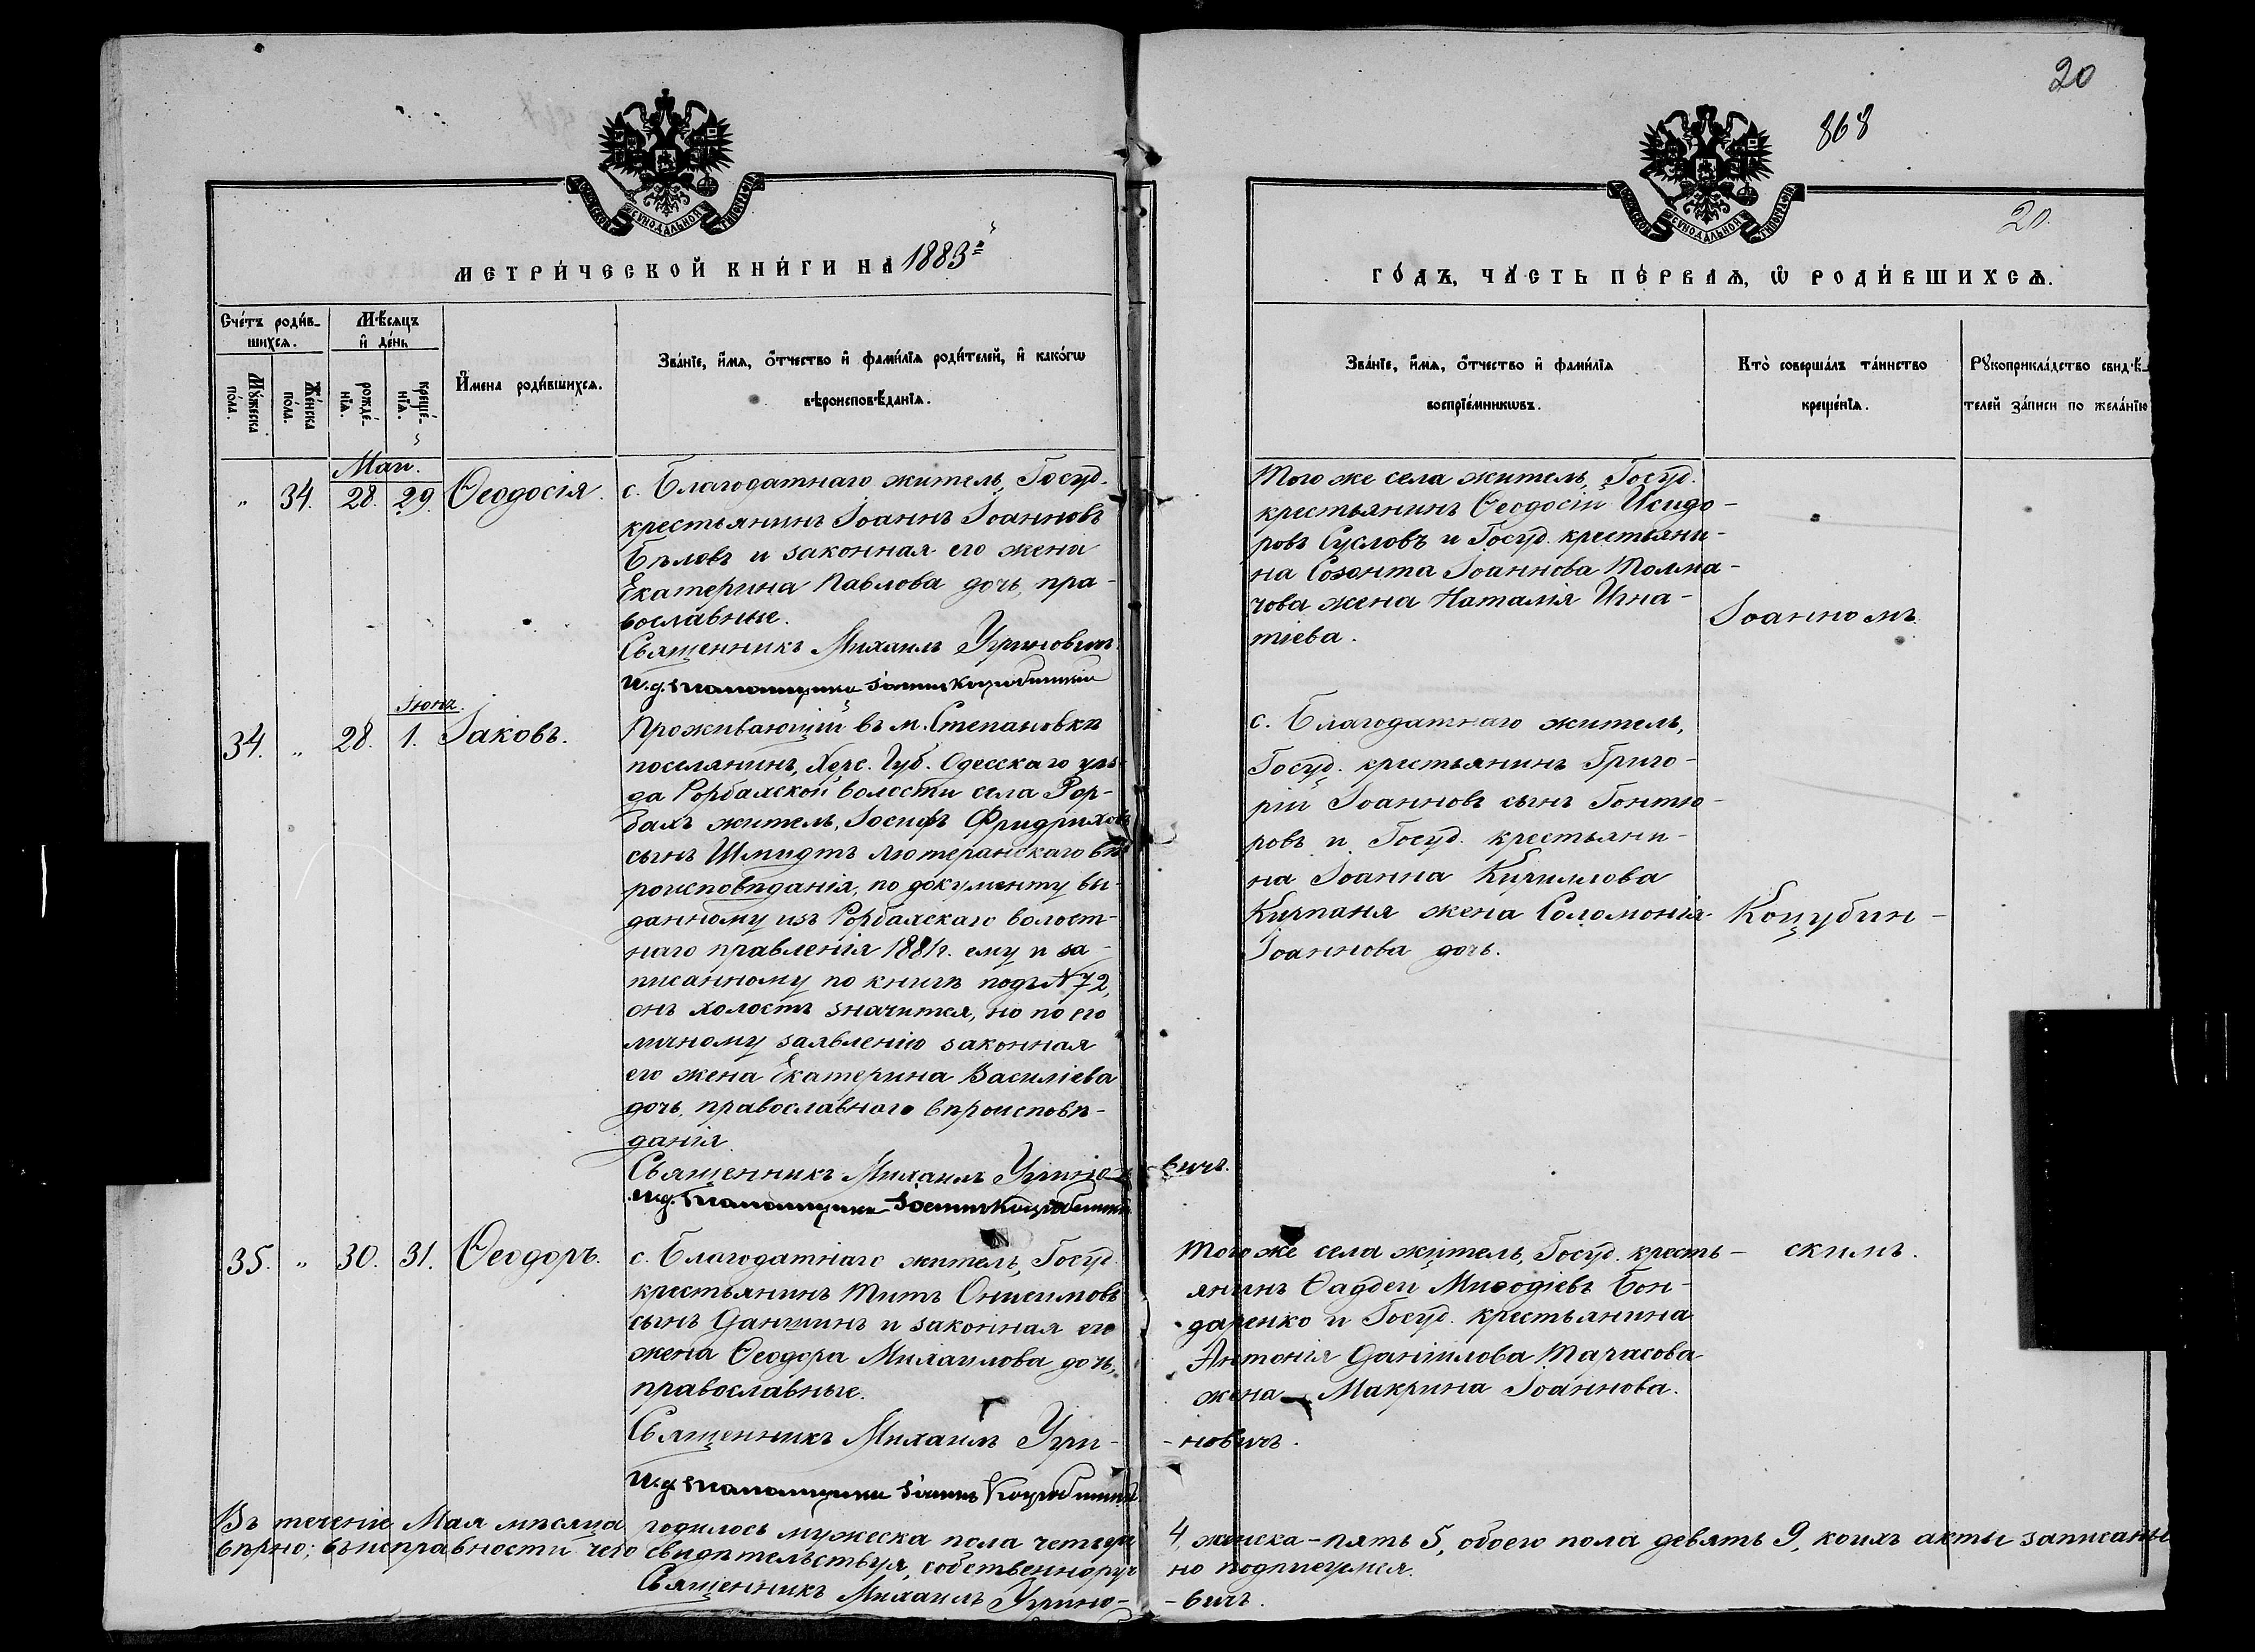 20
868
20.
МЕТРИ́ЧЕСКОЙ КНИ́ГИ НА 1883й
ГО́ДЪ, ЧА́СТЬ ПЕ́РВАѦ, Ѽ РОДИ́ВШИХСѦ.
Сче́тъ роди́в-
шихсѧ.
Мѣ́сѧцъ
и҆ де́нь
Мꙋ́жеска
по́ла.
Же́нска
по́ла.
рожде́-
нїѧ.
креще́-
нїѧ.
И҆мена роди́вшихсѧ.
Зва́нїе, и҆́мѧ, ѻ҆́тчество и҆ фамилїѧ роди́телей, и҆ како́гѡ
вѣроисповѣ́данїѧ.
Зва́нїе, и҆́мѧ, ѻ҆́тчество и҆ фамилїѧ
воспрїе́мникѡвъ.
Кто̀ соверша́лъ та́инство
креще́нїѧ.
Рꙋкоприкла́дство свидѣ́-
телей за́писи по жела́нїю
Маи.
" 34. 28. 29. Ѳеодосія.
с. Благодатнаго житель, Госуд.
крестьянинъ Іоаннъ Іоанновъ
Бѣловъ и законная его жена
Екатерина Павлова дочь, пра-
вославные.
Священникъ Михаилъ Угриновичъ.
И. д. Пономаря Іоаннъ Коцубинскій
Того же села житель, Госуд.
крестьянинъ Ѳеодосій Исидо-
ровъ Сусловъ и Госуд. крестьяни-
на Созонта Іоаннова Толма-
чова жена Наталія Игна-
тіева.
Іоанномъ
Іюня.
34. " 28. 1. Іаковъ.
Проживающій въ м. Степановкѣ
поселянинъ, Херс. Губ. Одесскаго уѣз-
да Рорбахской волости села Рор-
бахъ житель, Іосифъ Фридриховъ
сынъ Шмидтъ лютеранскаго вѣ-
роисповѣданія, по документу вы-
данному изъ Рорбахскаго волост-
наго правленія 1881г. ему и за-
писанному по книгѣ подъ № 72,
онъ холостъ значится, но по его
личному заявленію законная
его жена Екатерина Василіева
дочь, православнаго вѣроисповѣ-
данія.
Священникъ Михаилъ Угрино-
вичъ.
И. д. Пономаря Іоаннъ Коцубинскій
с. Благодатнаго житель,
Госуд. крестьянинъ Григо-
рій Іоанновъ сынъ Гонтю-
ровъ и Госуд. крестьяни-
на Іоанна Кириллова
Кирпаня жена Соломонія
Іоаннова дочь.
Коцубин-
35. " 30. 31. Ѳеодоръ.
с. Благодатнаго житель, Госуд.
крестьянинъ Титъ Онисимовъ
сынъ Даншинъ и законная его
жена Ѳеодора Михаилова дочь,
православные.
Священникъ Михаилъ Угри-
новичъ.
И. д. Пономаря Іоаннъ Коцубинскій
Того же села житель, Госуд. кресть-
янинъ Ѳаддей Меѳодіевъ Бон-
даренко и Госуд. крестьянина
Антонія Даніилова Тарасова
жена Макрина Іоаннова.
скимъ.
Въ теченіе Мая мѣсяца родилось мужеска пола четыре 4, женска - пять 5, обоего пола девять 9, коихъ акты записаны
вѣрно; въ исправности чего свидѣтельствуя, собственноруч но подписуемся.
Священникъ Михаилъ Угрино-
-вичъ.